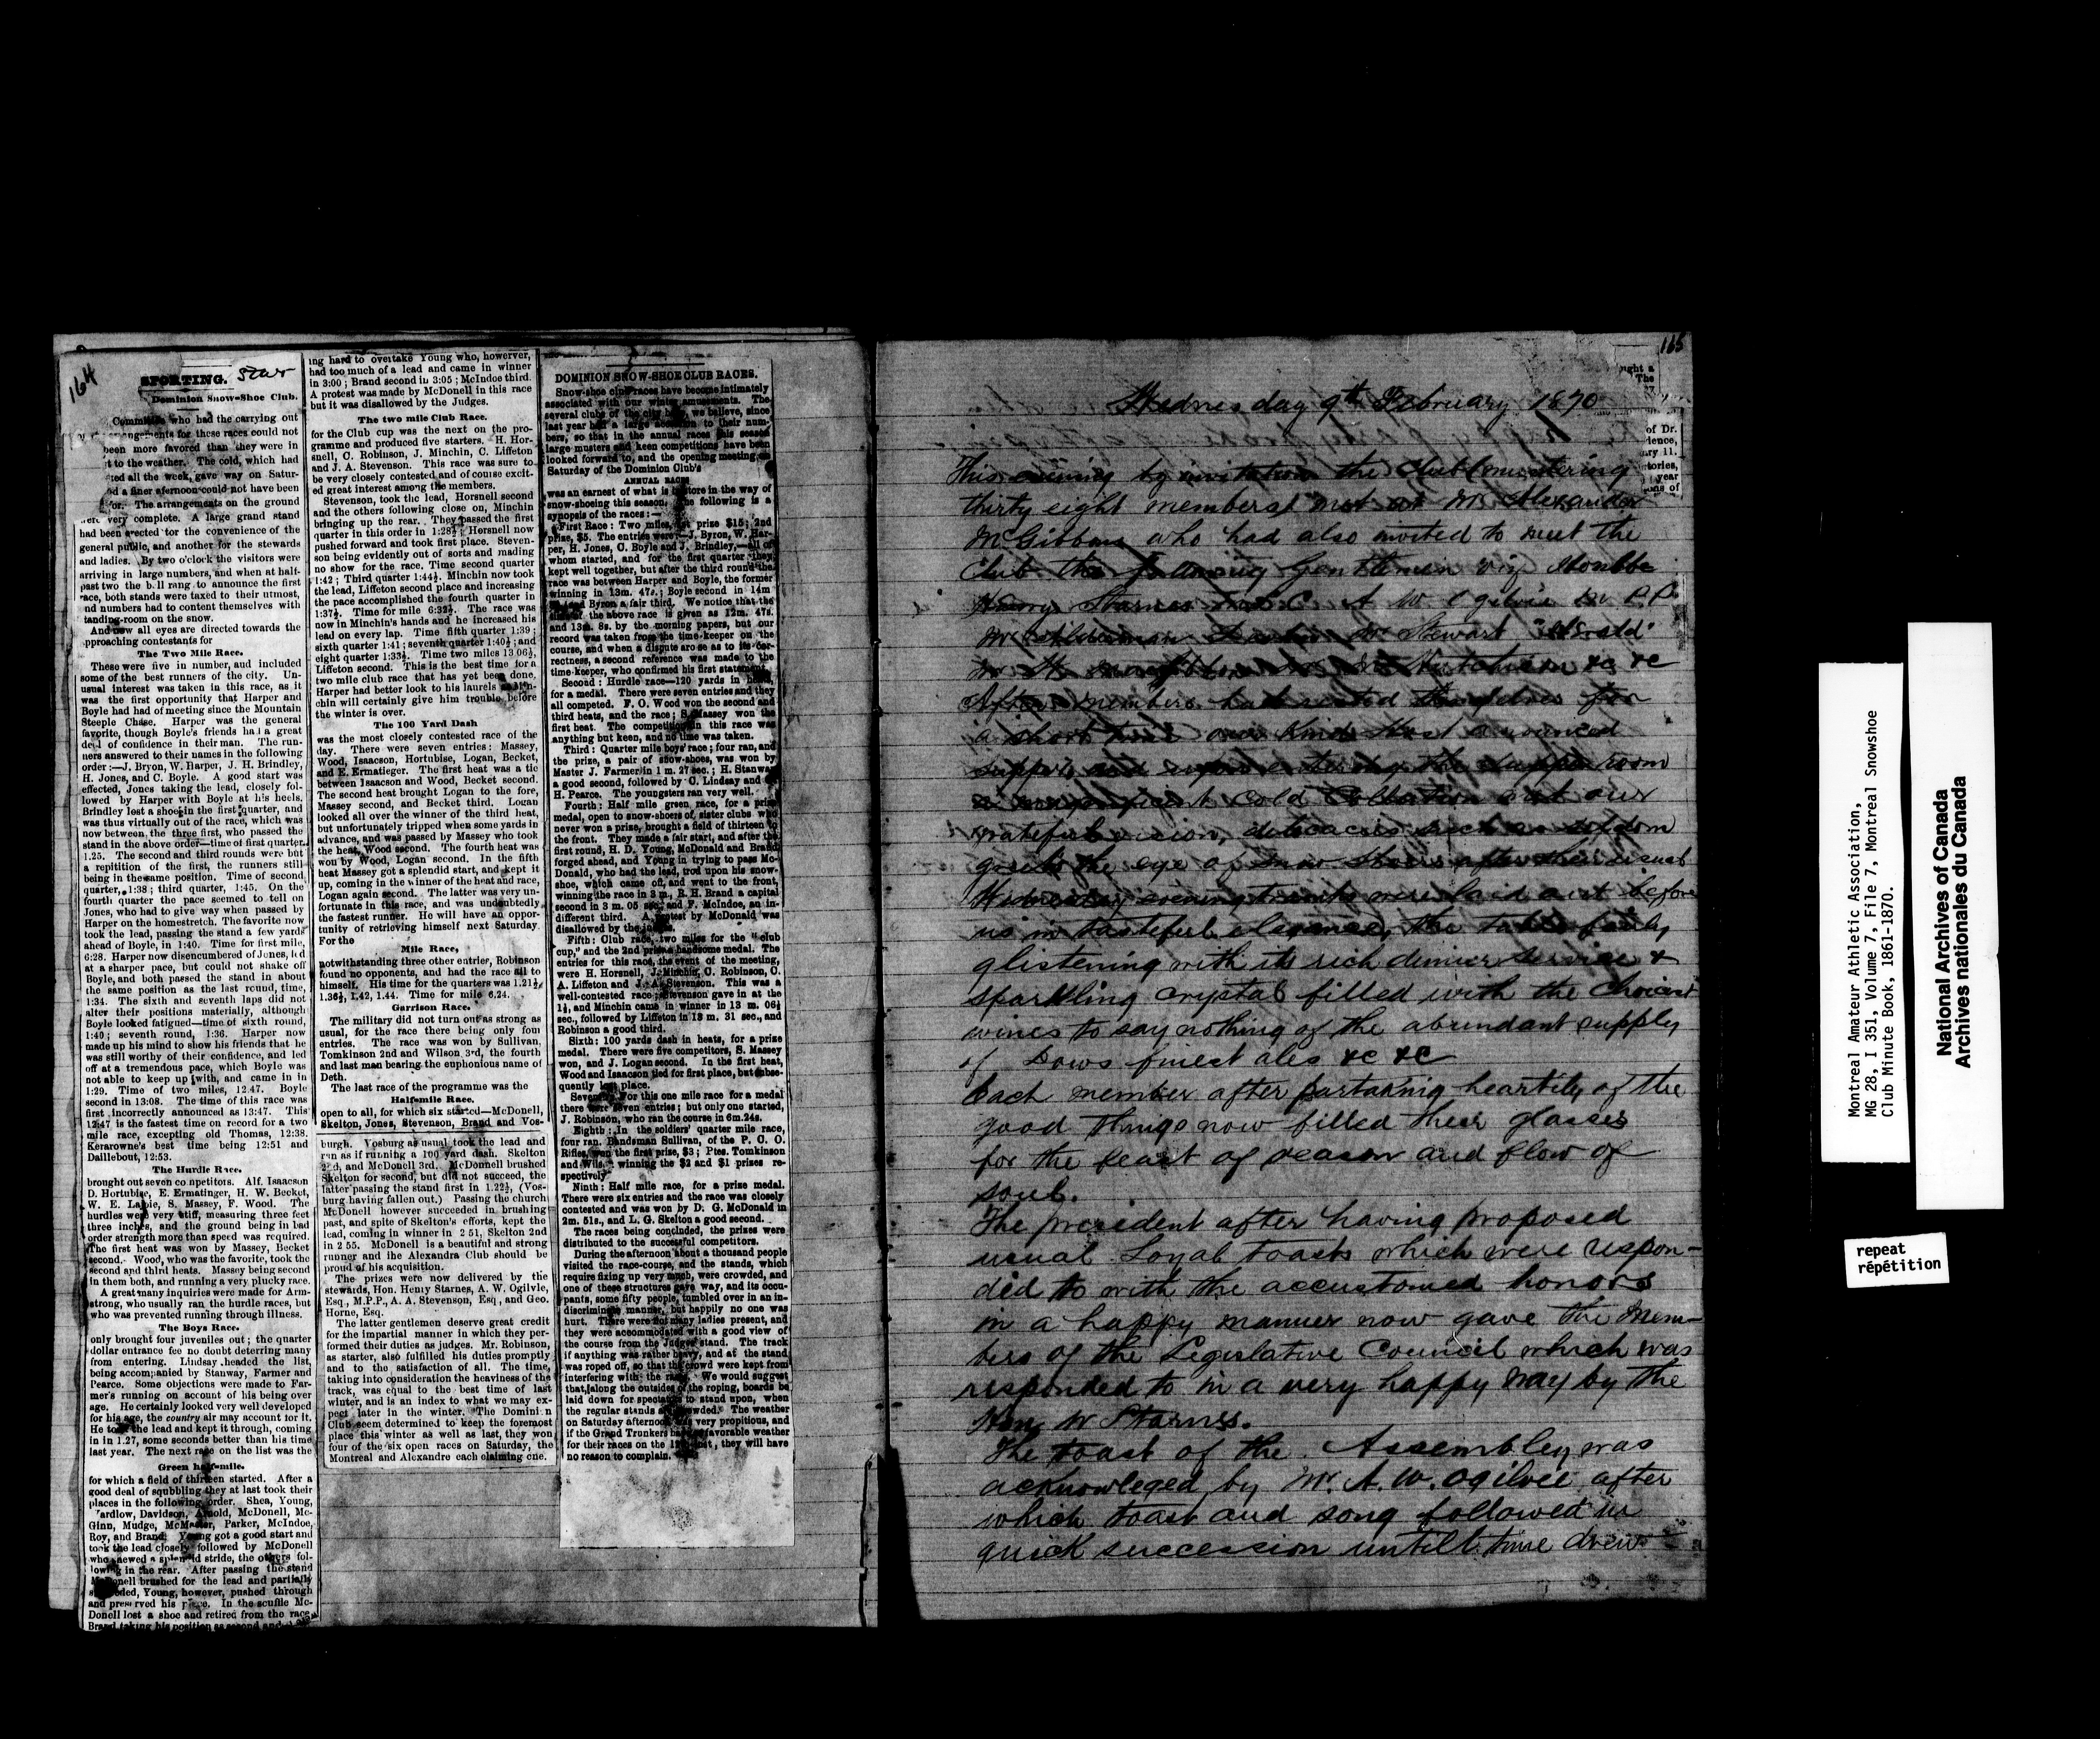 164
SPORTING. Star
Dominion Snow-Shoe Club.
Committee who had the carrying out
arrangements for these races could not
been more favored than they were in
to the weather. The cold, which had
all the week, gave way on Satur-
a finer afernoon could not have been
for. The arrangements on the ground
were very complete. A large grand stand
had been erected for the convenience of the
general public, and another for the stewards
and ladies. By two o'clock the visitors were
arriving in large numbers, and when at half-
past two the b.ll rang to announce the first
race, both stands were taxed to their utmost,
nd numbers had to content themselves with
tanding-room on the snow.
And now all eyes are directed towards the
pproaching contestants for
The Two Mile Race.
These were five in number, and included
some of the best runners of the city. Un-
usual interest was taken in this race, as it
was the first opportunity that Harper and
Boyle had had of meeting since the Mountain
Steeple Chase. Harper was the general
favorite, though Boyle's friends had a great
deal of confidence in their man. The run-
ners answered to their names in the following
order:—J. Bryon, W. Harper, J. H. Brindley,
H. Jones, and C. Boyle. A good start was
effected, Jones taking the lead, closely fol-
lowed by Harper with Boyle at his heels.
Brindley lost a shoe in the first quarter, and
was thus virtually out of the race, which was
now between the three first, who passed the
stand in the above order—time of first quarter,
1.25. The second and third rounds were but
a repitition of the first, the runners still
being in the same position. Time of second
quarter, 1:38; third quarter, 1:45. On the
fourth quarter the pace seemed to tell on
Jones, who had to give way when passed by
Harper on the homestretch. The favorite now
took the lead, passing the stand a few yards
ahead of Boyle, in 1:40. Time for first mile,
6:28. Harper now disencumbered of Jones, led
at a sharper pace, but could not shake off
Boyle, and both passed the stand in about
the same position as the last round, time,
1:34. The sixth and seventh laps did not
alter their positions materially, although
Boyle looked fatigued—time of sixth round,
1:40; seventh round, 1:36. Harper now
made up his mind to show his friends that he
was still worthy of their confidence, and led
off at a tremendous pace, which Boyle was
not able to keep up with, and came in in
1:29. Time of two miles, 12.47. Boyle
second in 13:08. The time of this race was
first incorrectly announced as 13:47. This
12:47 is the fastest time on record for a two
mile race, excepting old Thomas, 12:38.
Kerarowne's best time being 12:51 and
Daillebout, 12:53.
The Hurdle Race.
brought out seven co npetitors. Alf. Isaacson
D. Hortubise, E. Ermatinger, H. W. Becket,
W. E. Labie, S. Massey, F. Wood. The
hurdles were very stiff, measuring three feet
three inches, and the ground being in bad
order strength more than speed was required.
The first heat was won by Massey, Becket
second. Wood, who was the favorite, took the
second and third heats. Massey being second
in them both, and running a very plucky race.
A great many inquiries were made for Arm-
strong, who usually ran the hurdle races, but
who was prevented running through illness.
The Boys Race.
only brought four juveniles out; the quarter
dollar entrance fee no doubt deterring many
from entering. Lindsay headed the list,
being accompanied by Stanway, Farmer and
Pearce. Some objections were made to Far-
mer's running on account of his being over
age. He certainly looked very well developed
for his age, the country air may account for it.
He took the lead and kept it through, coming
in in 1.27, some seconds better than his time
last year. The next race on the list was the
Green half-mile.
for which a field of thirteen started. After a
good deal of squbbling they at last took their
places in the following order. Shea, Young,
Wardlow, Davidson, Arnold, McDonell, Mc-
Ginn, Mudge, McMaster, Parker, McIndoe,
Roy, and Brand. Young got a good start and
took the lead closely followed by McDonell
who shewed a splendid stride, the others fol-
lowing in the rear. After passing the stand
McDonell brushed for the lead and partially
succeeded, Young, however, pushed through
and preserved his place. In the scuffle Mc-
Donell lost a shoe and retired from the race
Brand taking his position as second and
ing hard to overtake Young who, however,
had too much of a lead and came in winner
in 3:00; Brand second in 3:05; McIndoe third.
A protest was made by McDonell in this race
but it was disallowed by the Judges.
The two mile Club Race.
for the Club cup was the next on the pro-
gramme and produced five starters. H. Hor-
snell, C. Robinson, J. Minchin, C. Liffeton
and J. A. Stevenson. This race was sure to
be very closely contested and of course excit-
ed great interest among the members.
Stevenson, took the lead, Horsnell second
and the others following close on, Minchin
bringing up the rear. They passed the first
quarter in this order in 1:28½; Horsnell now
pushed forward and took first place. Steven-
son being evidently out of sorts and mading
no show for the race. Time second quarter
1:42; Third quarter 1:44½. Minchin now took
the lead, Liffeton second place and increasing
the pace accomplished the fourth quarter in
1:37½. Time for mile 6:32½. The race was
now in Minchin's hands and he increased his
lead on every lap. Time fifth quarter 1:39;
sixth quarter 1:41; seventh quarter 1:40½; and
eight quarter 1:33½. Time two miles 13 06½,
Liffeton second. This is the best time for a
two mile club race that has yet been done.
Harper had better look to his laurels as Min-
chin will certainly give him trouble before
the winter is over.
The 100 Yard Dash
was the most closely contested race of the
day. There were seven entries: Massey,
Wood, Isaacson, Hortubise, Logan, Becket,
and E. Ermatieger. The first heat was a tie
between Isaacson and Wood, Becket second.
The second heat brought Logan to the fore,
Massey second, and Becket third. Logan
looked all over the winner of the third heat,
but unfortunately tripped when some yards in
advance, and was passed by Massey who took
the heat, Wood second. The fourth heat was
won by Wood, Logan second. In the fifth
heat Massey got a splendid start, and kept it
up, coming in the winner of the heat and race,
Logan again second. The latter was very un-
fortunate in this race, and was undoubtedly
the fastest runner. He will have an oppor-
tunity of retrieving himself next Saturday.
For the
Mile Race,
notwithstanding three other entries, Robinson
found no opponents, and had the race all to
himself. His time for the quarters was 1.21½,
1.36½, 1.42, 1.44. Time for mile 6.24.
Garrison Race.
The military did not turn out as strong as
usual, for the race there being only four
entries. The race was won by Sullivan,
Tomkinson 2nd and Wilson 3rd, the fourth
and last man bearing the euphonious name of
Deth.
The last race of the programme was the
Half-mile Race.
open to all, for which six started—McDonell,
Skelton, Jones, Stevenson, Brand and Vos-
burgh. Vosburg as usual took the lead and
ran as if running a 100 yard dash. Skelton
2nd, and McDonell 3rd. McDonnell brushed
Skelton for second, but did not succeed, the
latter passing the stand first in 1.22½, (Vos-
burg having fallen out.) Passing the church
McDonell however succeeded in brushing
past, and spite of Skelton's efforts, kept the
lead, coming in winner in 2 51, Skelton 2nd
in 2 55. McDonell is a beautiful and strong
runner and the Alexandra Club should be
proud of his acquisition.
The prizes were now delivered by the
stewards, Hon. Henry Starnes, A. W. Ogilvle,
Esq., M.P.P., A. A. Stevenson, Esq, and Geo.
Horne, Esq.
The latter gentlemen deserve great credit
for the impartial manner in which they per-
formed their duties as judges. Mr. Robinson,
as starter, also fulfilled his duties promptly
and to the satisfaction of all. The time,
taking into consideration the heaviness of the
track, was equal to the best time of last
winter, and is an index to what we may ex-
pect later in the winter. The Domini n
Club seem determined to keep the foremost
place this winter as well as last, they won
four of the six open races on Saturday, the
Montreal and Alexandre each claiming one.
DOMINION SNOW-SHOE CLUB RACES.
Snow-shoe club races have become intimately
associated with our winter amusements. The
several clubs of the city have, we believe, since
last year had a large accession to their num-
bers, so that in the annual races this season
large musters and keen competitions have been
looked forward to, and the opening meeting on
Saturday of the Dominion Club's
ANNUAL RACES
was an earnest of what is in store in the way of
snow-shoeing this season. The following is a
synopsis of the races:—
First Race: Two miles, 1st prize $15; 2nd
prize, $5. The entries were—J. Byron, W. Har-
per, H. Jones, C. Boyle and J. Brindley,—all of
whom started, and for the first quarter they
kept well together, but after the third round the
race was between Harper and Boyle, the former
winning in 13m. 47s.; Boyle second in 14m
and Byron a fair third. We notice that the
time of the above race is given as 12m. 47s.
and 13m. 8s. by the morning papers, but our
record was taken from the time-keeper on the
course, and when a dispute arose as to its cor-
rectness, a second reference was made to the
time-keeper, who confirmed his first statement.
Second: Hurdle race—120 yards in heats,
for a medal. There were seven entries and they
all competed. F. O. Wood won the second and
third heats, and the race; S. Massey won the
first heat. The competition in this race was
anything but keen, and no time was taken.
Third: Quarter mile boys' race; four ran, and
the prize, a pair of snow-shoes, was won by
Master J. Farmer in 1 m. 27 sec.; H. Stanway
a good second, followed by C. Lindsay and
H. Pearce. The youngsters ran very well.
Fourth: Half mile green race, for a prize
medal, open to snow-shoers of sister clubs who
never won a prize, brought a field of thirteen to
the front. They made a fair start, and after the
first round, H. D. Young, McDonald and Brand
forged ahead, and Young in trying to pass Mc-
Donald, who had the lead, trod upon his snow-
shoe, which came off, and went to the front,
winning the race in 3 m., R. H. Brand a capital
second in 3 m. 05 sec., and F. McIndoe, an in-
different third. A protest by McDonald was
disallowed by the judges.
Fifth: Club race, two miles for the "club
cup," and the 2nd prize a handsome medal. The
entries for this race, the event of the meeting,
were H. Horsnell, J. Minchin, C. Robinson, C.
A. Liffeton and J. A. Stevenson. This was a
well-contested race; Stevenson gave in at the
1½, and Minchin came in winner in 13 m. 06½
sec., followed by Liffeton in 13 m. 31 sec., and
Robinson a good third.
Sixth: 100 yards dash in heats, for a prize
medal. There were five competitors, S. Massey
won, and J. Logan second. In the first heat,
Wood and Isaacson tied for first place, but subse-
quently lost place.
Seventh: For this one mile race for a medal
there were seven entries; but only one started,
J. Robinson, who ran the course in 6m.24s.
Eighth: In the soldiers' quarter mile race,
four ran. Bandsman Sullivan, of the P. C. O.
Rifles, won the first prize, $3; Ptes. Tomkinson
and Wilson winning the $2 and $1 prizes re-
spectively
Ninth: Half mile race, for a prize medal.
There were six entries and the race was closely
contested and was won by D. G. McDonald in
2m. 51s., and L. G. Skelton a good second.
The races being concluded, the prizes were
distributed to the successful competitors.
During the afternoon about a thousand people
visited the race-course, and the stands, which
require fixing up very much, were crowded, and
one of these structures gave way, and its occu-
pants, some fifty people, tumbled over in an in-
discriminate manner, but happily no one was
hurt. There were not many ladies present, and
they were accommodated with a good view of
the course from the Judges' stand. The track
if anything was rather heavy, and at the stand
was roped off, so that the crowd were kept from
interfering with the race. We would suggest
that, along the outside of the roping, boards be
laid down for spectators to stand upon, when
the regular stands are crowded. The weather
on Saturday afternoon was very propitious, and
if the Grand Trunkers have favorable weather
for their races on the 12th inst, they will have
no reason to complain.
165
Wednesday 9th February 1870
This evening by invitation the Club (mustering
thirty eight members) met at Mr Alexander
McGibbons who had also invited to meet the
Club the following Gentlemen viz Honble
Henry Starnes A W Ogilvie M P.P.
Mr Stewart "Herald"
&c &c
After members had seated themselves for
a short time our kind Host announced
supper, and upon entering the supper room
a magnificent cold collation met our
grateful vision, delicacies such as seldom
greets the eye of Snow Shoers after their usual
Wednesday evening tramps were laid out before
us in tasteful elegance, the table fairly
glistening with its rich dinner service &
sparkling crystal filled with the choicest
wines to say nothing of the abundant supply
of Dows finest ales &c &c
Each member after partaking heartily of the
good things now filled their glasses
for the feast of reason and flow of
soul.
The president after having proposed
usual Loyal toasts which were respon-
ded to with the accustomed honors
in a happy manner now gave the Mem-
bers of the Legislative Council which was
responded to in a very happy way by the
Hon. Mr Starnes.
The toast of the Assembley was
acknowleged by Mr. A. W. Ogilvie after
which toast and song followed in
quick succession untill time drew
Montreal Amateur Athletic Association,
MG 28, I 351, Volume 7, File 7, Montreal Snowshoe
Club Minute Book, 1861-1870.
National Archives of Canada
Archives nationales du Canada
repeat
répétition